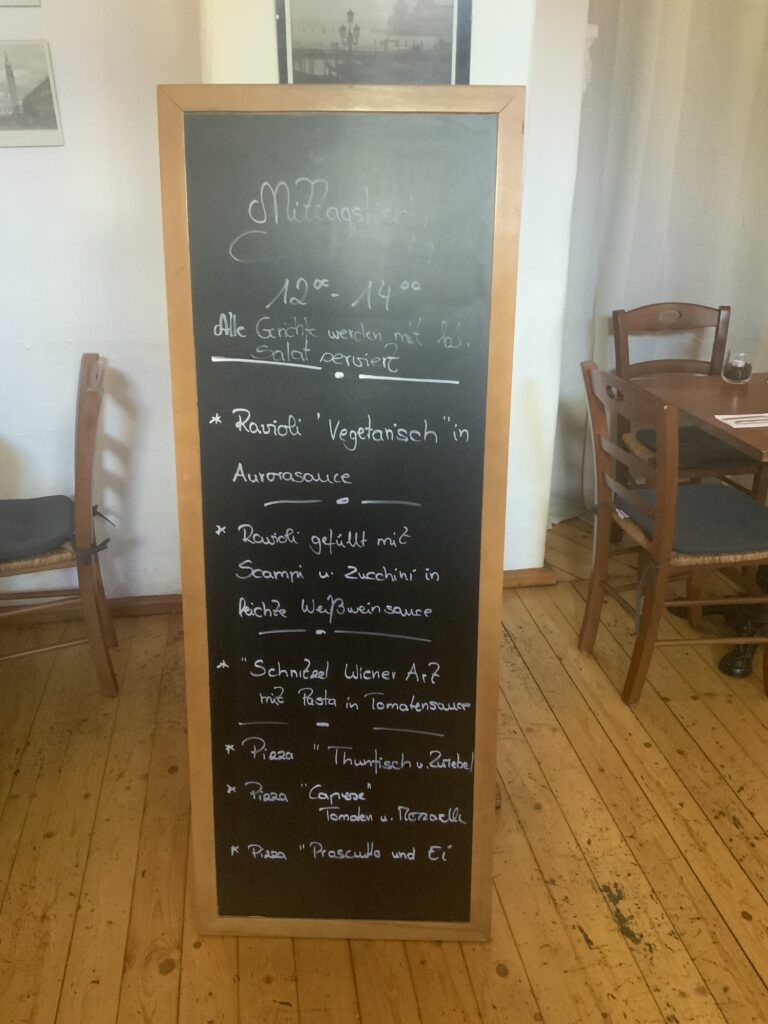 Mittagstisch
12⁰⁰ - 14⁰⁰
Alle Gerichte werden mit kl.
Salat serviert
* Ravioli "Vegetarisch" in
Aurorasauce
* Ravioli gefüllt mit
Scampi u. Zucchini in
leichte Weißweinsauce
* "Schnitzel Wiener Art
mit Pasta in Tomatensauce
* Pizza "Thunfisch u. Zwiebel
* Pizza "Caprese"
Tomaten u.
* Pizza "Prosciutto und Ei"